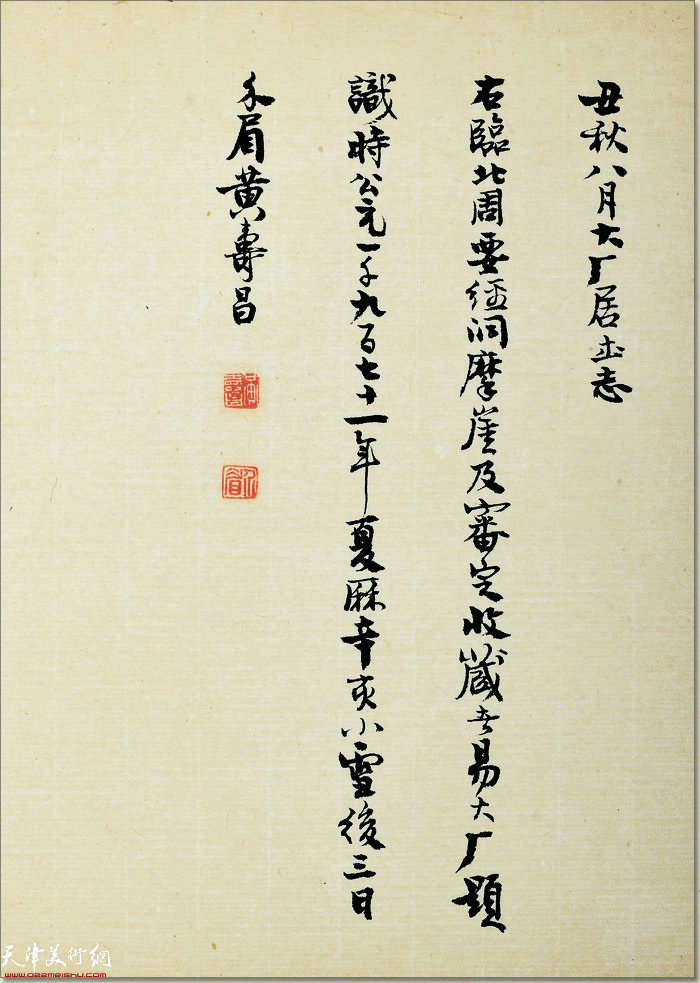 丑秋八月大厂居士志
右臨北周要經洞摩崖及審定收藏者易大厂題
識時公元一千九百七十一年夏厤辛亥小雪後三日
介眉黃壽昌
天津美術網
www.022meishu.com